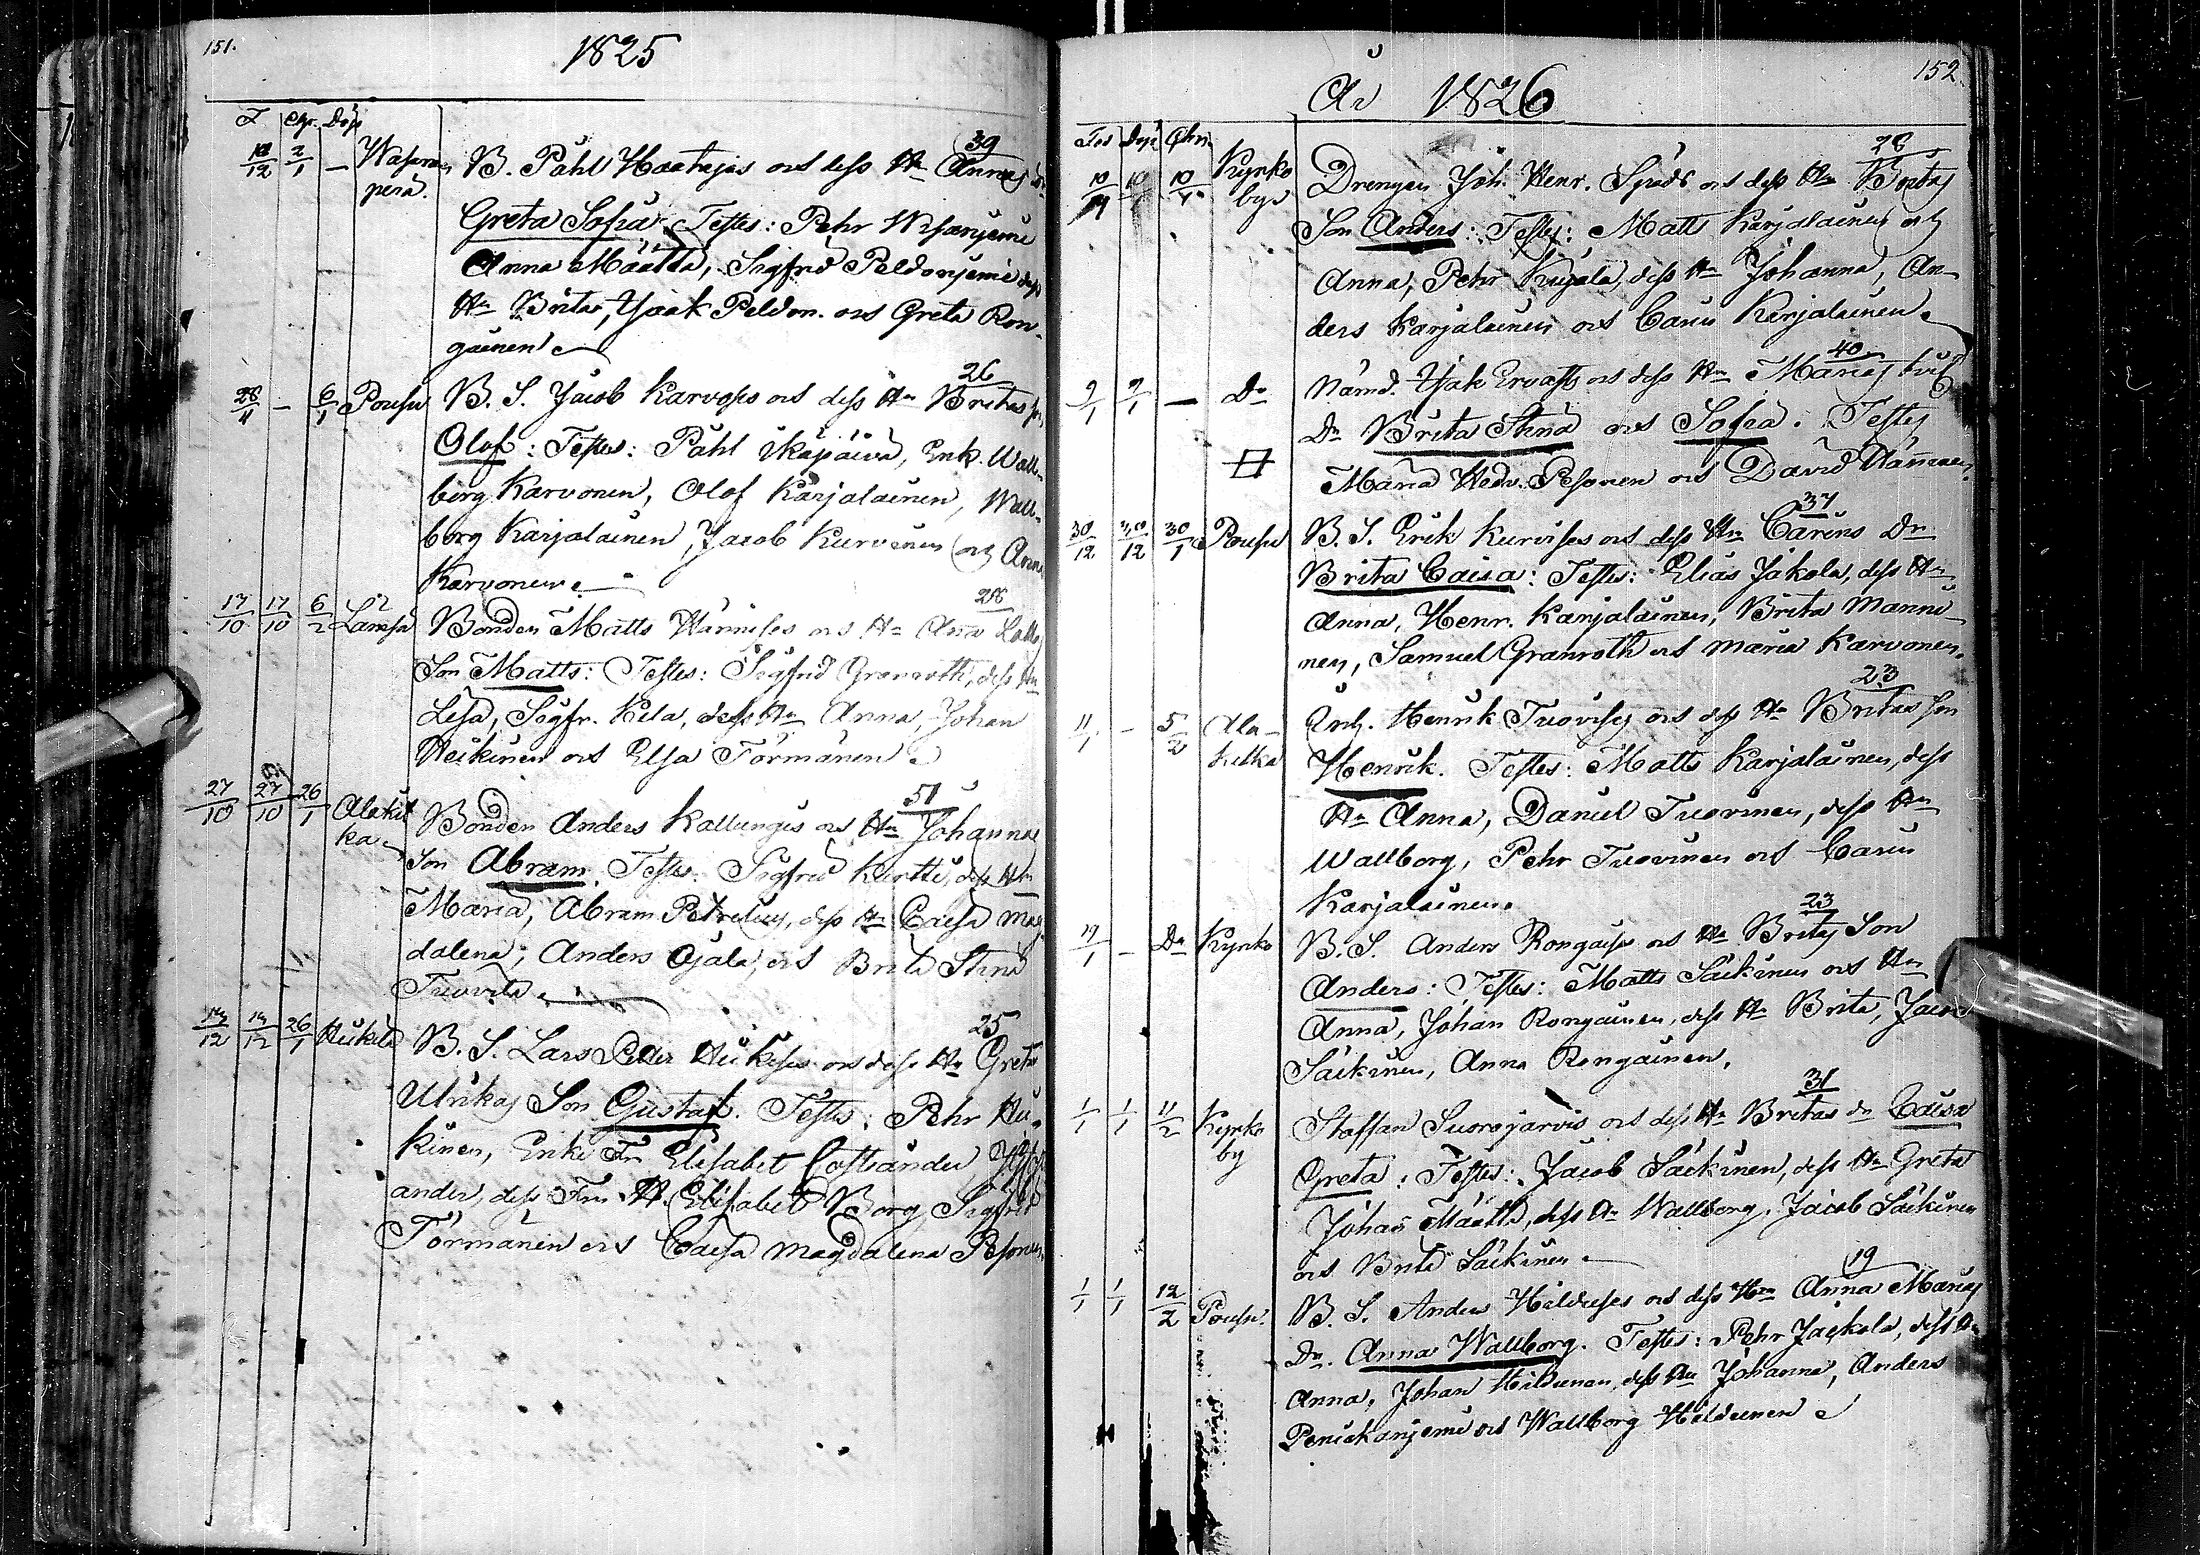 151.
1825
F Chr. Döp
39
18/12 2/1 – B. Påhl Haatajas och dess Hu Annas Dr
perä. Greta Sofia. Testes: Pehr
Anna Määttä, Sigfrid Peldoniemi dess
Hu Brita, Isaak Peldon. och Greta Ron-
gainen
26
28/11 – 6/1 Posio B. S. Jacob Karvoses och dess Hu Britas son
Olof: Testes: Påhl Ikäpäivä, Enk. Wall-
borg Karvonen, Olof Karjalainen, Wall-
borg Karjalainen, Jacob Kurvinen och Anna
Karvonen.
28
17/10 17/10 6/2 Lamsa Bonden Matts Hännises och Hu Anna
Son Matts: Testes: Sigfrid Granroth, dess Hu
Lisa, Sigfr. Kela, dess Hu Anna, Johan
Heikinen och Elsa Törmänen
51
27/10 27/10 26/1 Alakit
ka Bonden Anders Kallungis och Hu Johannas
Son Abram. Testes: Sigfrid Kurtti, dess Hu
Maria, Abram Petrelius, dess Hu Caisa Mag-
dalena; Anders Ojala, och Brita Stina
Tuovila
25
14/12 14/12 26/1 Heikilä B. S. Lars Petter Heikises och dess Hu Greta
Ulrikas Son Gustaf. Testes: Pehr Hei-
kinen, Enke Fru Elisabet Costiander
ander, dess Fru H. Elisabet Borg, Sigfrid
Törmänen och Caisa Magdalena Pesonen
152
År 1826
Föd Döpt Chrn
28
10/1 10 10/1 Kyrko Drengen Joh. Henr. och dess Hu Britas
by Son Anders: Testes: Matts Karjalainen och
Anna, Pehr Kujala, dess Hu Johanna, An-
ders Karjalainen och Carin Karjalainen
40
9/1 9/1 – Do Nämd. Isak Ervasts och dess Hu Marias
Dr Brita Stina och Sofia. Testes
Maria Hedv. Pesonen och David Hänninen
37
30/12 30/12 30/1 Posio B. S. Erik Kurvises och dess Hu Carins Dr
Brita Caisa: Testes: Elias Jakola, dess Hu
Anna, Henr. Karjalainen, Brita Manni-
nen, Samuel Granroth och Maria Karvonen.
23
11/1 – 5/2 Ala- Inh. Henrik Tuovises och dess Hu Britas Son
kitka Henrik. Testes: Matts Karjalainen, dess
Hu Anna, Daniel Tuovinen, dess Hu
Wallborg, Pehr Tuovinen och Carin
Karjalainen.
23
19/1 – Do Kyrko B. S. Anders Rongais och Hu Britas Son
Anders: Testes: Matts Säikinen och Hu
Anna, Johan Rongainen, dess Hu Brita, Jacob
Säikinen, Anna Rongainen.
31
1/1 1/1 11/2 Kyrko Staffan Suorojärvis och dess Hu Britas dr Caisa
by Greta: Testes: Jacob Säikinen, dess Hu Greta
Johan Määttä, dess Hu Wallborg. Jacob Säikinen
och Brita Säikinen
19
1/1 1/1 12/2 Posio. B. S. Anders Hildises och dess Hu Anna Marias
Dr. Anna Wallborg. Testes: Pehr Jäkola, dess Hu
Anna, Johan Hildunen, dess Hu Johanna, Anders
och Wallborg Hildunen